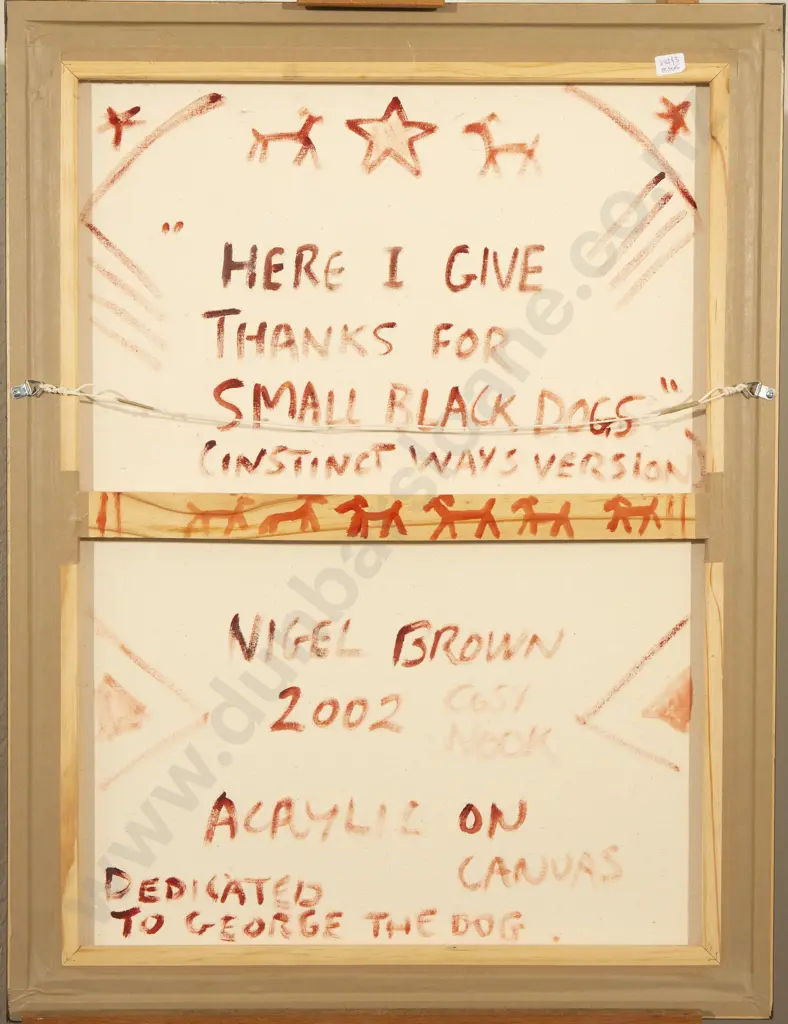 " HERE I GIVE
THANKS FOR
SMALL BLACK DOGS"
(INSTINCT WAYS VERSION)
NIGEL BROWN
2002 COSY
NOOK
ACRYLIC ON
CANVAS
DEDICATED
TO GEORGE THE DOG.